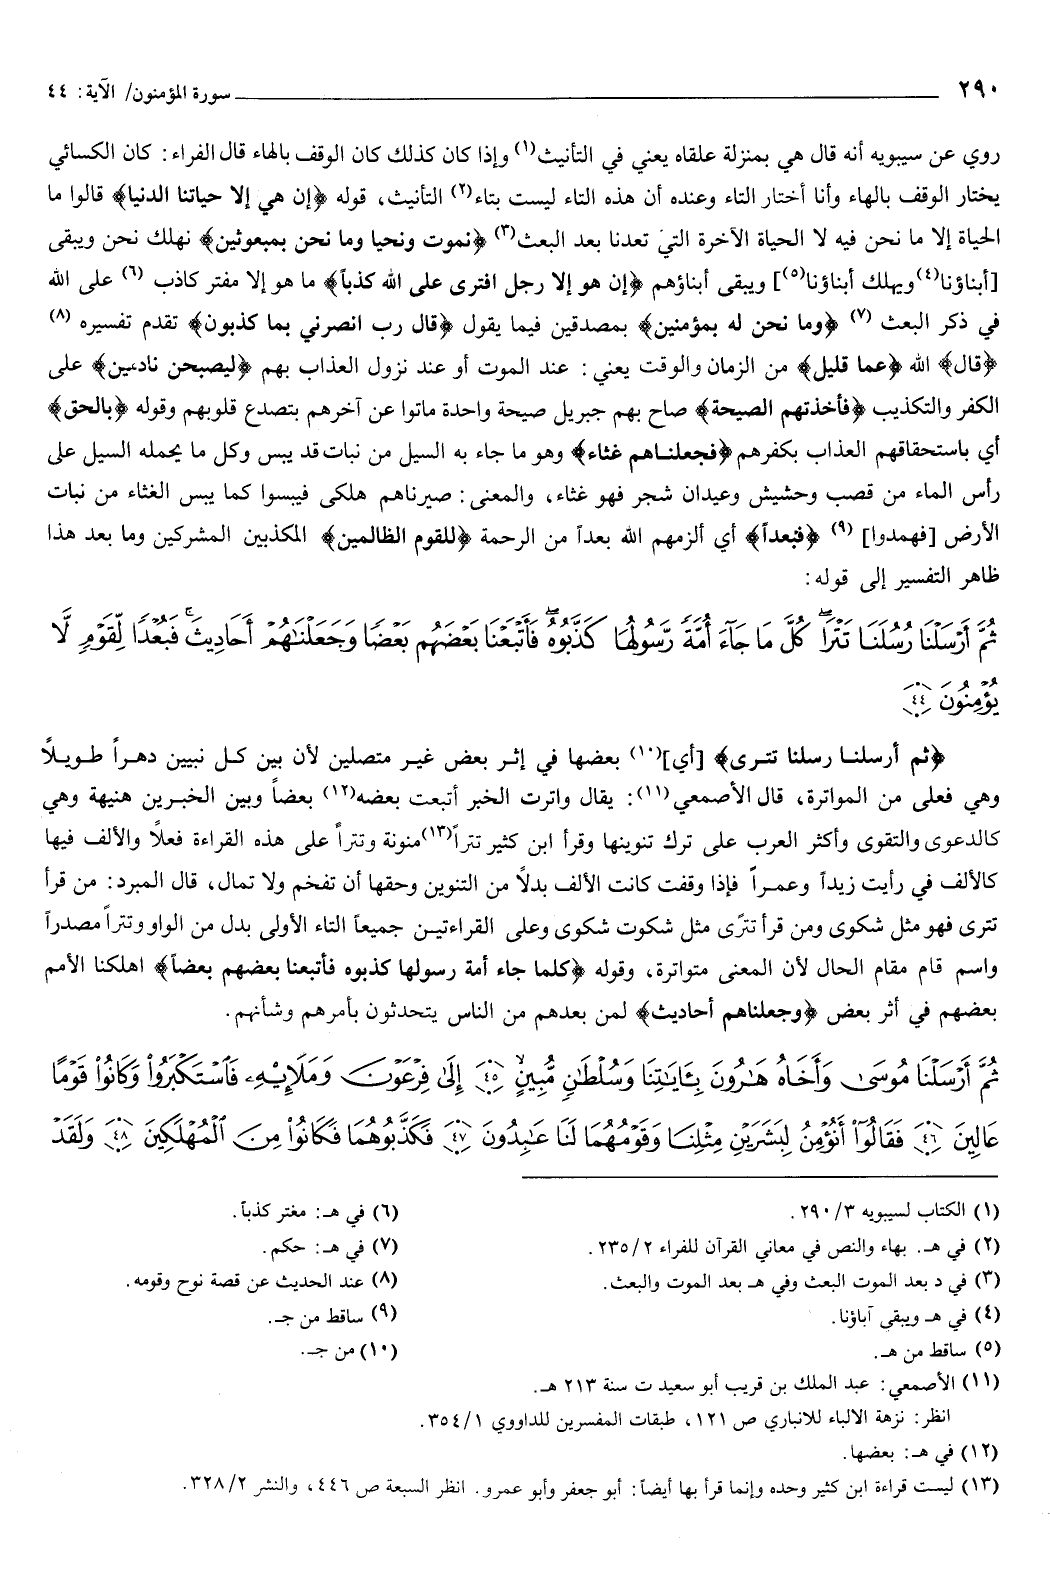 ٢٩٠ سورة المؤمنون/ الآية: ٤٤
روي عن سيبويه أنه قال هي بمنزلة علقاه يعني في التأنيث(١) وإذا كان كذلك كان الوقف بالهاء قال الفراء: كان الكسائي
يختار الوقف بالهاء وأنا أختار التاء وعنده أن هذه التاء ليست بتاء(٢) التأنيث، قوله ﴿إن هي إلا حياتنا الدنيا﴾ قالوا ما
الحياة إلا ما نحن فيه لا الحياة الآخرة التي تعدنا بعد البعث(٣) ﴿نموت ونحيا وما نحن بمبعوثين﴾ نهلك نحن ويبقى
[أبناؤنا(٤) ويهلك أبناؤنا(٥)] ويبقى أبناؤهم ﴿إن هو إلا رجل افترى على الله كذباً﴾ ما هو إلا مفتر كاذب (٦) على الله
في ذكر البعث (٧) ﴿وما نحن له بمؤمنين﴾ بمصدقين فيما يقول ﴿قال رب انصرني بما كذبون﴾ تقدم تفسيره (٨)
﴿قال﴾ الله ﴿عما قليل﴾ من الزمان والوقت يعني: عند الموت أو عند نزول العذاب بهم ﴿ليصبحن نادمين﴾ على
الكفر والتكذيب ﴿فأخذتهم الصيحة﴾ صاح بهم جبريل صيحة واحدة ماتوا عن آخرهم بتصدع قلوبهم وقوله ﴿بالحق﴾
أي باستحقاقهم العذاب بكفرهم ﴿فجعلناهم غثاء﴾ وهو ما جاء به السيل من نبات قد يبس وكل ما يحمله السيل على
رأس الماء من قصب وحشيش وعيدان شجر فهو غثاء، والمعنى: صيرناهم هلكى فيبسوا كما يبس الغثاء من نبات
الأرض [فهمدوا] (٩) ﴿فبعداً﴾ أي ألزمهم الله بعداً من الرحمة ﴿للقوم الظالمين﴾ المكذبين المشركين وما بعد هذا
ظاهر التفسير إلى قوله:
ثُمَّ أَرْسَلْنَا رُسُلَنَا تَتْرَا كُلَّ مَا جَآءَ أُمَّةً رَّسُولُهَا كَذَّبُوهُ فَأَتْبَعْنَا بَعْضَهُم بَعْضًا وَجَعَلْنَٰهُمْ أَحَادِيثَ فَبُعْدًا لِّقَوْمٍ لَّا
يُؤْمِنُونَ ٤٤
﴿ثم أرسلنا رسلنا تترى﴾ [أي](١٠) بعضها في إثر بعض غير متصلين لأن بين كل نبيين دهراً طويلاً
وهي فعلى من المواترة، قال الأصمعي(١١): يقال واترت الخبر أتبعت بعضه(١٢) بعضاً وبين الخبرين هنيهة وهي
كالدعوى والتقوى وأكثر العرب على ترك تنوينها وقرأ ابن كثير تتراً(١٣) منونة وتتراً على هذه القراءة فعلاً والألف فيها
كالألف في رأيت زيداً وعمراً فإذا وقفت كانت الألف بدلاً من التنوين وحقها أن تفخم ولا تمال، قال المبرد: من قرأ
تترى فهو مثل شكوى ومن قرأ تترًى مثل شكوت شكوى وعلى القراءتين جميعاً التاء الأولى بدل من الواو وتتراً مصدراً
واسم قام مقام الحال لأن المعنى متواترة، وقوله ﴿كلما جاء أمة رسولها كذبوه فأتبعنا بعضهم بعضاً﴾ اهلكنا الأمم
بعضهم في أثر بعض ﴿وجعلناهم أحاديث﴾ لمن بعدهم من الناس يتحدثون بأمرهم وشأنهم.
ثُمَّ أَرْسَلْنَا مُوسَىٰ وَأَخَاهُ هَٰرُونَ بِـَٔايَٰتِنَا وَسُلْطَٰنٍ مُّبِينٍ ٤٥ إِلَىٰ فِرْعَوْنَ وَمَلَإِي۟هِ فَٱسْتَكْبَرُوا۟ وَكَانُوا۟ قَوْمًا
عَالِينَ ٤٦ فَقَالُوٓا۟ أَنُؤْمِنُ لِبَشَرَيْنِ مِثْلِنَا وَقَوْمُهُمَا لَنَا عَٰبِدُونَ ٤٧ فَكَذَّبُوهُمَا فَكَانُوا۟ مِنَ ٱلْمُهْلَكِينَ ٤٨ وَلَقَدْ
(١) الكتاب لسيبويه ٣/ ٢٩٠.
(٢) في هـ. بهاء والنص في معاني القرآن للفراء ٢/ ٢٣٥.
(٣) في د بعد الموت البعث وفي هـ بعد الموت والبعث.
(٤) في هـ ويبقى آباؤنا.
(٥) ساقط من هـ.
(٦) في هـ: مغتر كذباً.
(٧) في هـ: حكم.
(٨) عند الحديث عن قصة نوح وقومه.
(٩) ساقط من جـ.
(١٠) من جـ.
(١١) الأصمعي: عبد الملك بن قريب أبو سعيد ت سنة ٢١٣ هـ.
انظر: نزهة الالباء للانباري ص ١٢١، طبقات المفسرين للداووي ١/ ٣٥٤.
(١٢) في هـ: بعضها.
(١٣) ليست قراءة ابن كثير وحده وإنما قرأ بها أيضاً: أبو جعفر وأبو عمرو. انظر السبعة ص ٤٤٦، والنشر ٢/ ٣٢٨.